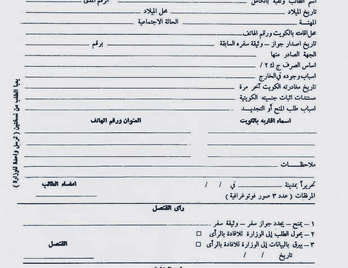 اسم الطالب ولقبه بالكامل
الرقم المدنى
تاريخ الميلاد محل الميلاد
المهنـــة الحالة الاجتماعية
محل اقامته بالكويت ورقم الهاتف
تاريخ اصدار جواز - وثيقة سفره السابقة برقم
الجهة الصادر منها
اساس الصرف ج ك / ٢
اسباب وجوده في الخارج
تاريخ مغادرته الكويت آخر مرة
مستندات اثبات جنسيته الكويتية
اسباب طلب المنح أو التجديـد
اسماء اقاربه بالكويت العنوان ورقم الهاتف
ملاحظـــات
تحريراً بمدينة في / / امضاء الطالب
المرفقات ( عدد ٣ صور فوتوغرافية )
رأى القنصل
١ - يمنح - يجدد جواز سفر - وثيقة سفر
٢ - يحول الطلب إلى الوزارة للافادة بالرأى
٣ - يبرق بالبيانات إلى الوزارة للافادة بالرأى
القنصل
تاريخ / /
يعبأ الطلب من نسختين ( ترسل واحدة للوزارة )